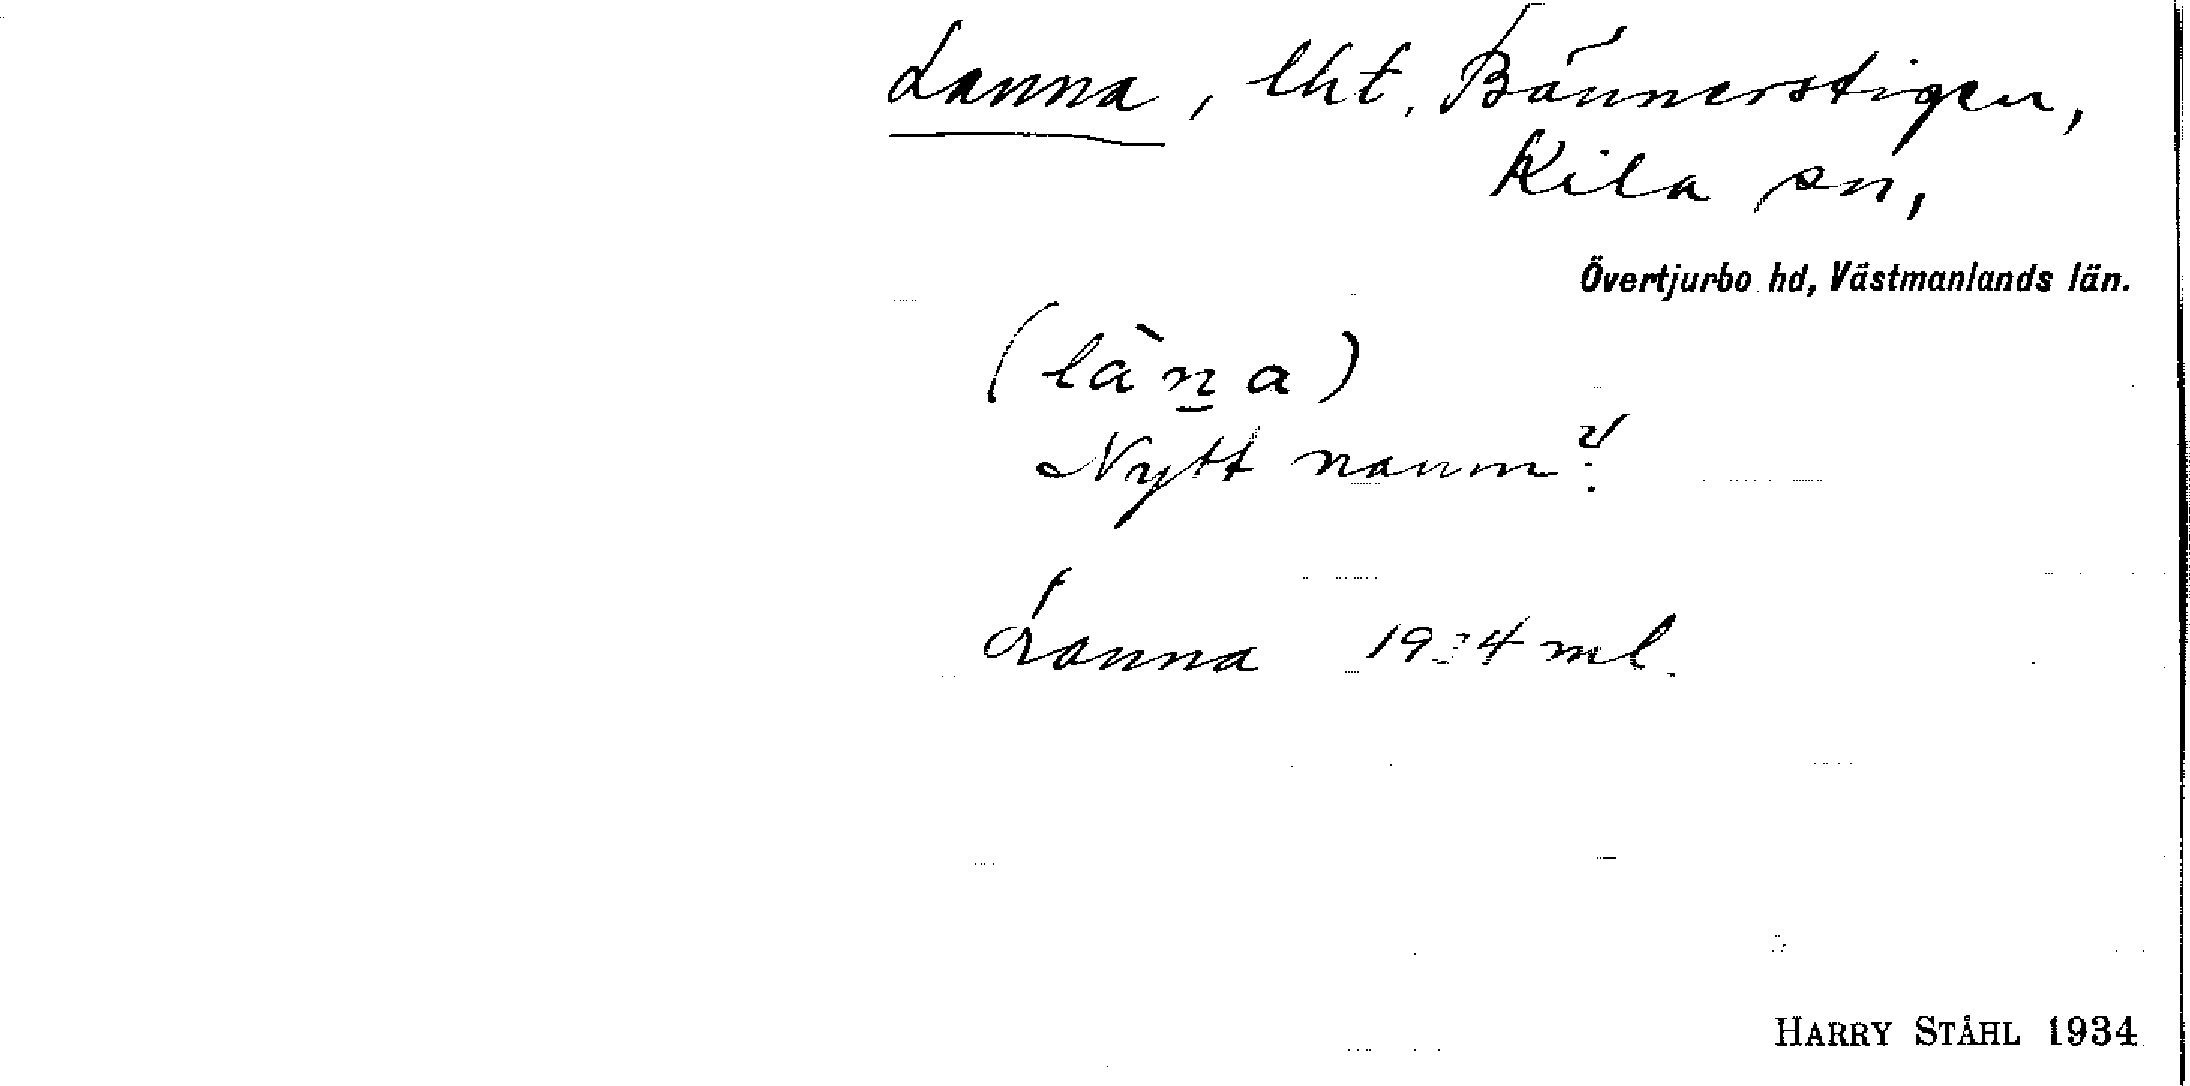 Lanna, lht. Bännerstigen,
Kila sn,
Övertjurbo hd, Västmanlands län.
(làn̲a)
Nytt namn?
Lanna 1934 ml.
HARRY STÅHL 1934